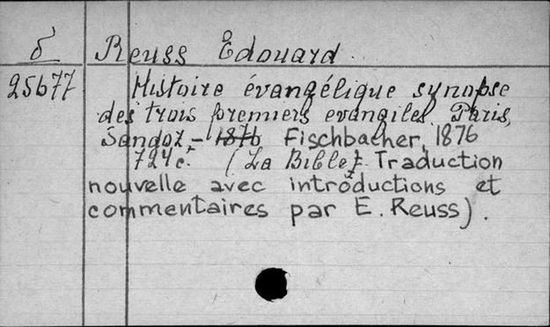 б Reuss Edouard.
25677 Histoire évangélique synopse
des trois premiers evangiles Paris,
Sandoz - 1876 Fischbacher, 1876
724 c. (La Bible). Traduction
nouvelle avec introductions et
commentaires par E. Reuss).